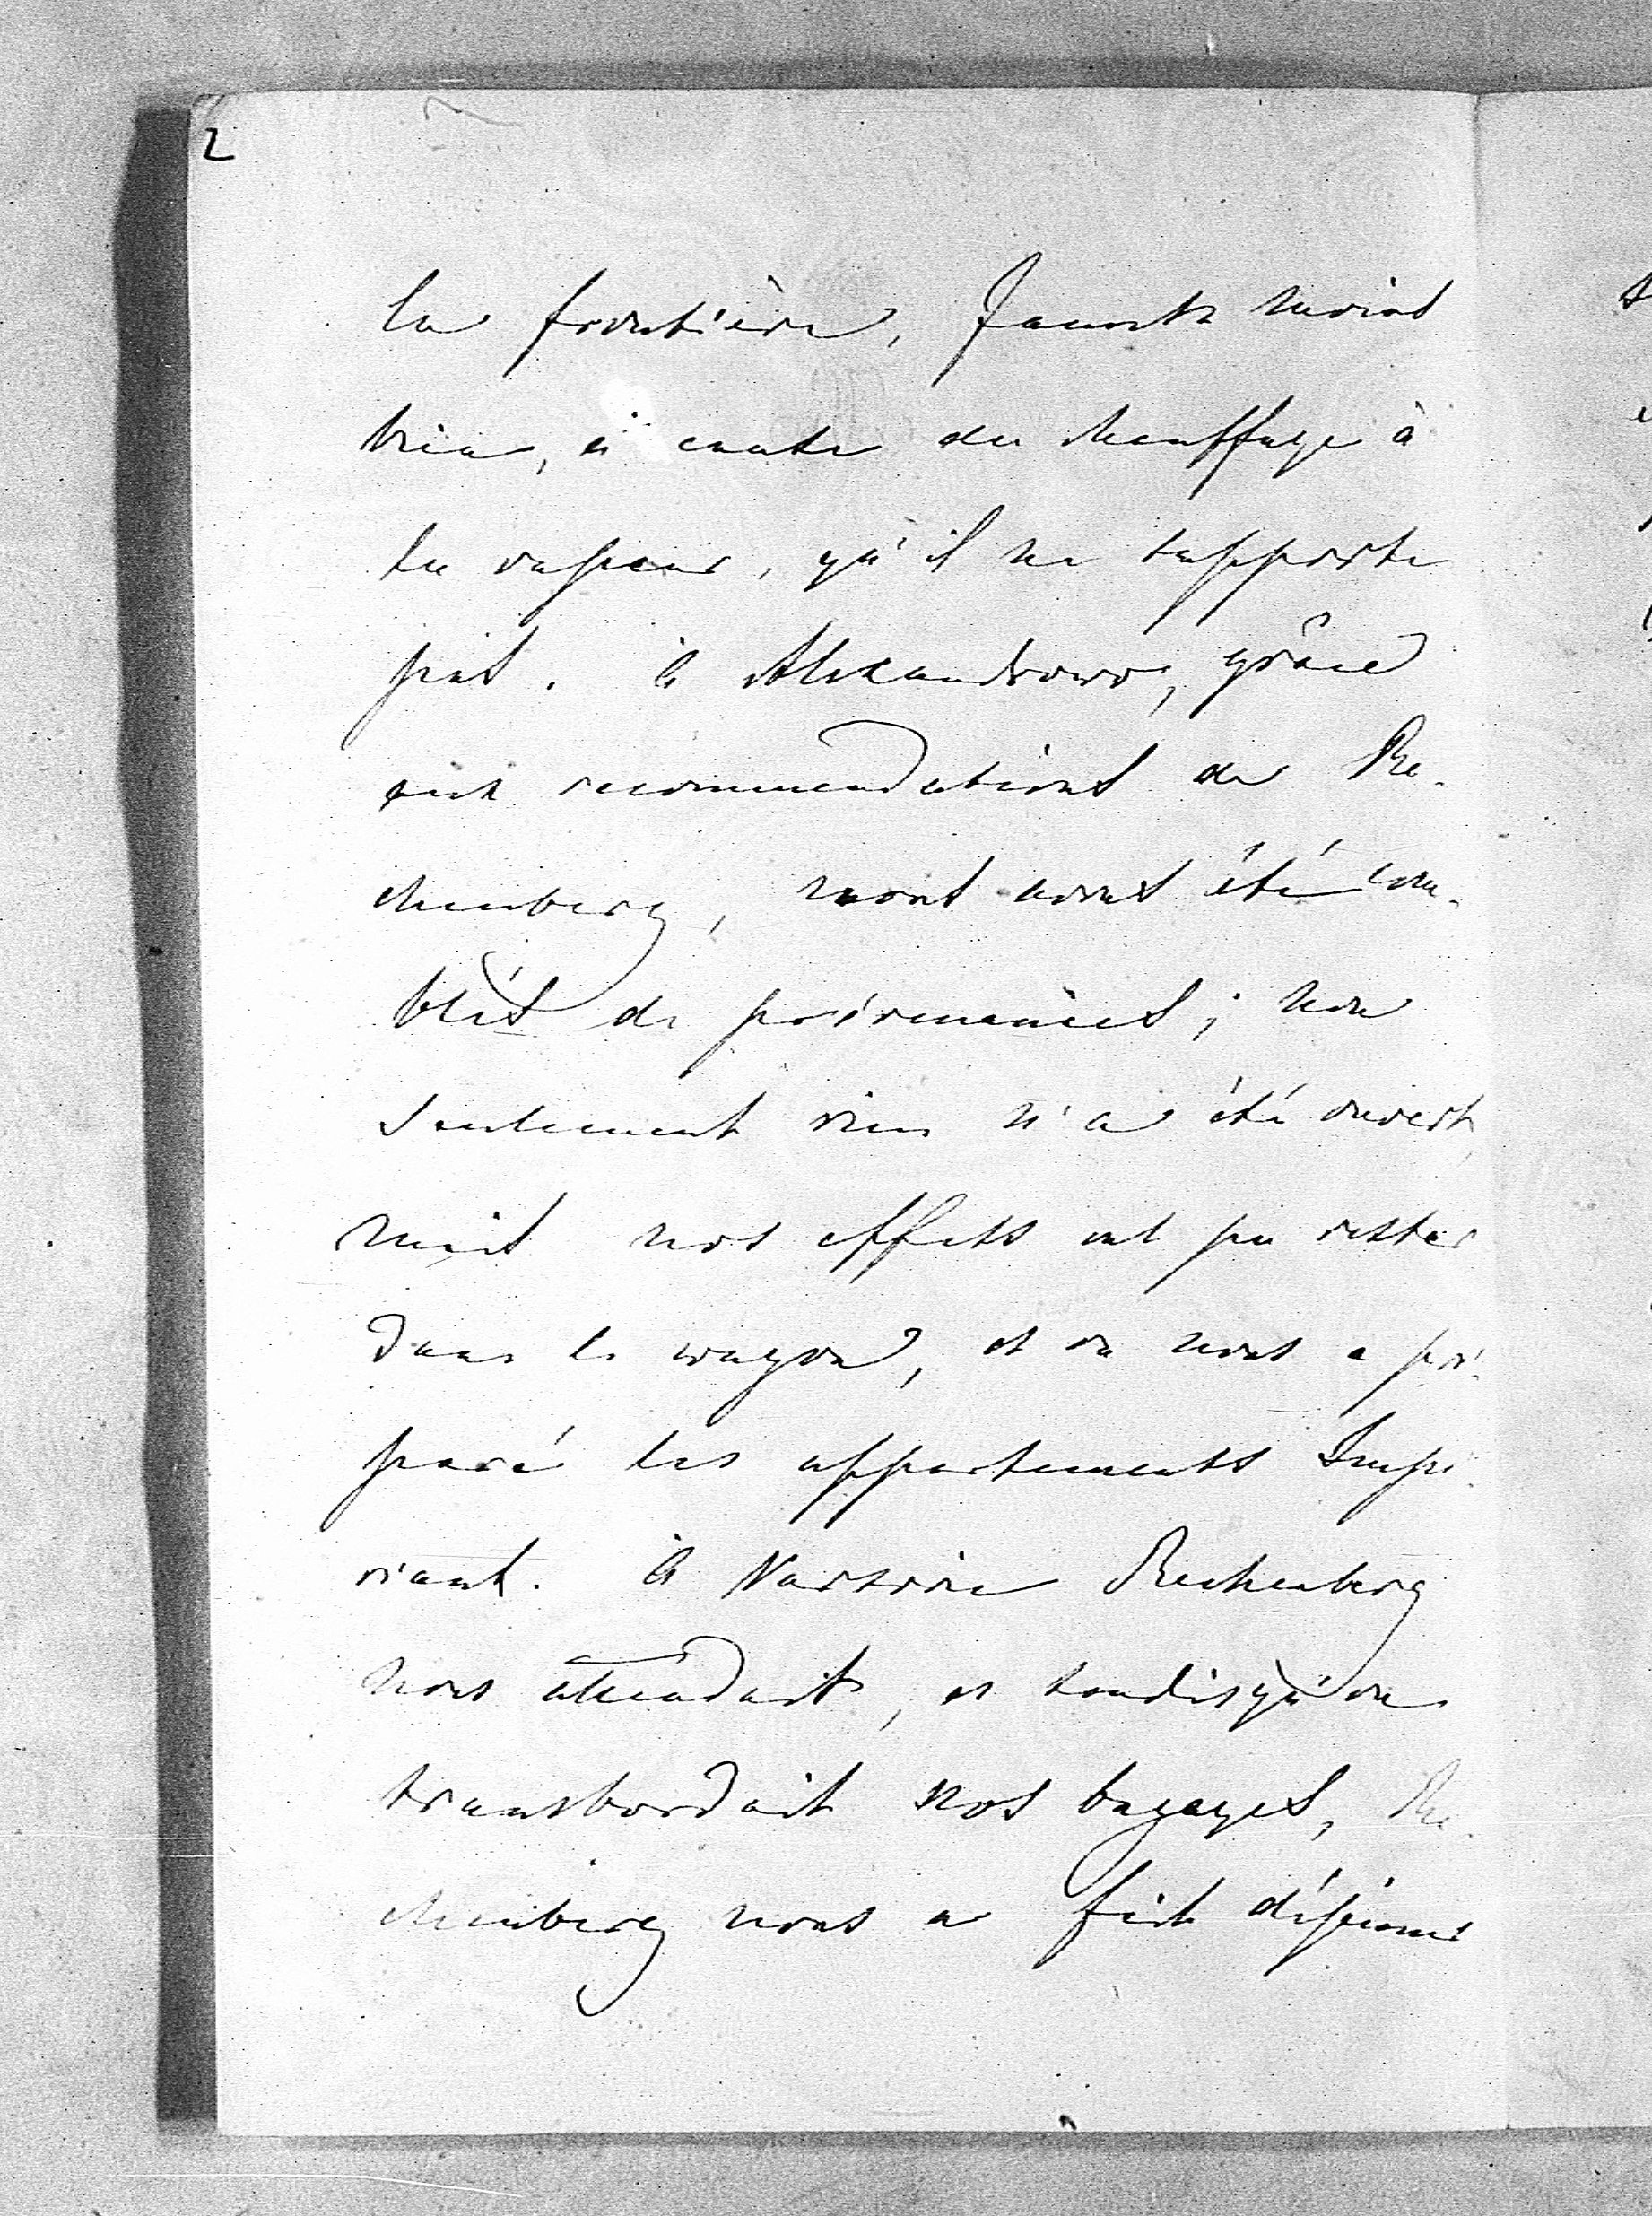 2
la frontière, Fausts moins
bien, à cause du chauffage à
la vapeur, qu'il ne supporte
pas. à Alexandrowo, grâce
aux recommendations de Re-
chenberg, nous avons été com-
blés de prévenances; non
seulement rien n'a été ouvert,
mais nos effets ont pu rester
dans le wagon, et on nous a pré-
paré les appartements Impé-
riaux. à Varsovie Rechenberg
nous attendait, et tandisqu'on
transbordait nos bagages, Re-
chenberg nous a fait déjeuner